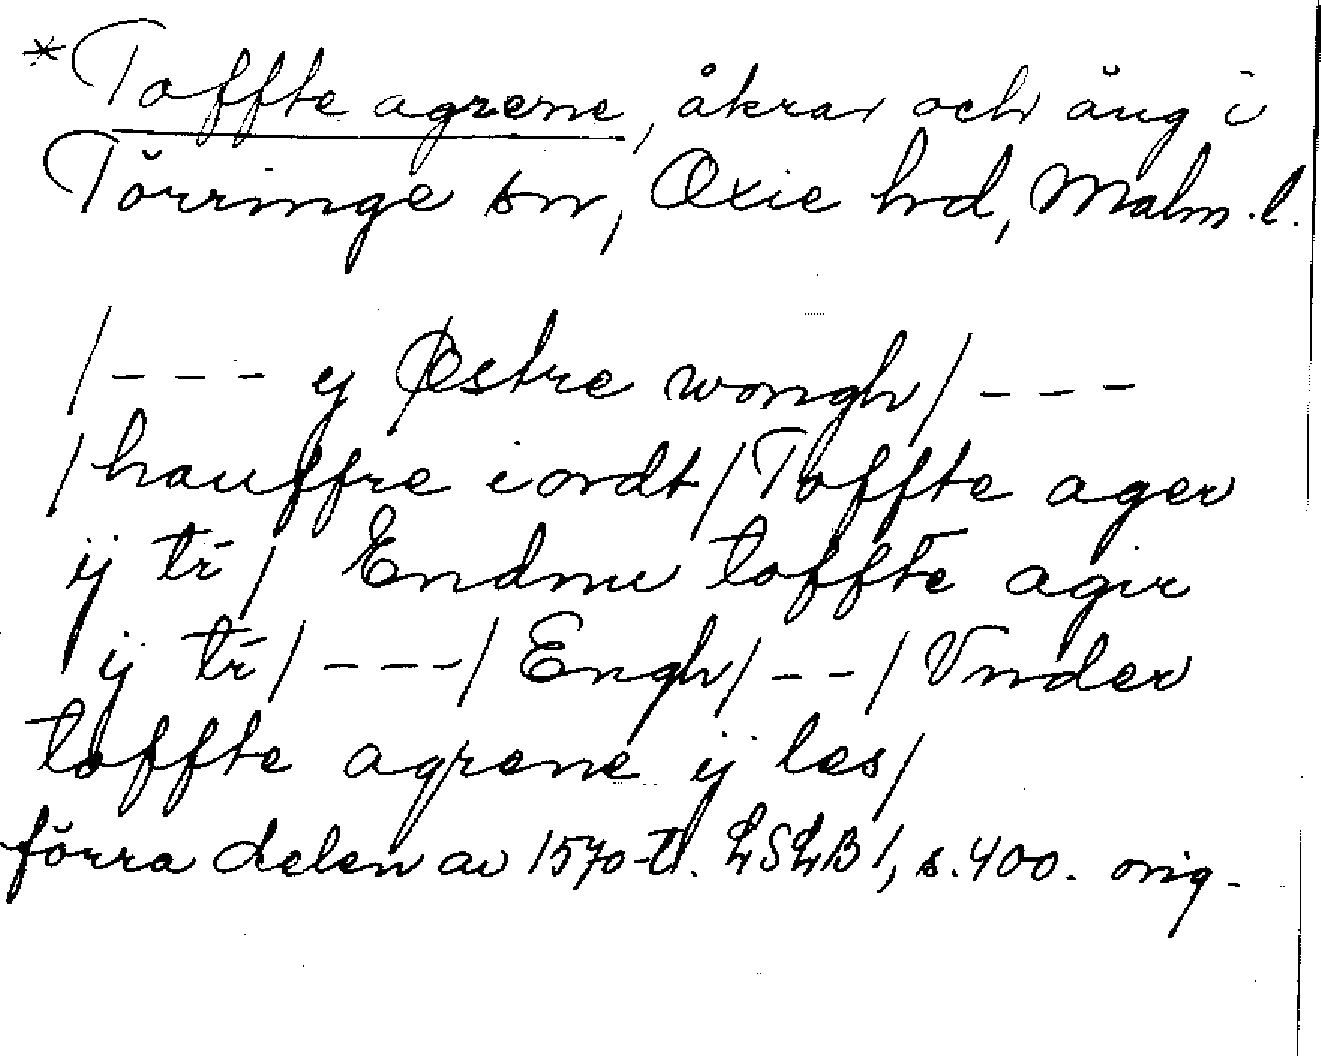 *Toffte agrene, åkrar och äng i
Törringe sn, Oxie hd, Malm. l.
/--- y Østre wongh/ ---
/hauffre iordt/Toffte ager
ij tr̄/ Endnu toffte agir
ij tr̄/---/Engh/--/Vnder
toffte agrene ij les/
förra delen av 1570-t. LSLB 1, s. 400. orig.